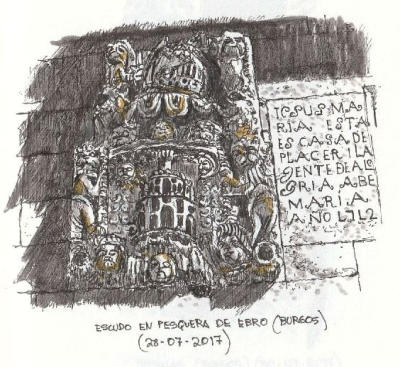 IESUS MA
RIA ESTA
ES CASA DE
PLACER I LA
GENTE DE ALE
GRIA ABE
MARIA
AÑO 1712
ESCUDO EN PESQUERA DE EBRO (BURGOS)
(28-07-2017)